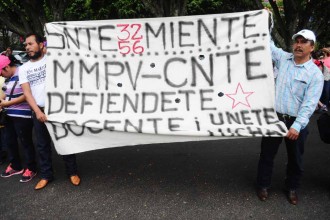 SNTE 32 MIENTE.
56
MMPV-CNTE
DEFIENDETE
DOCENTE ¡UNETE
LUCHA!